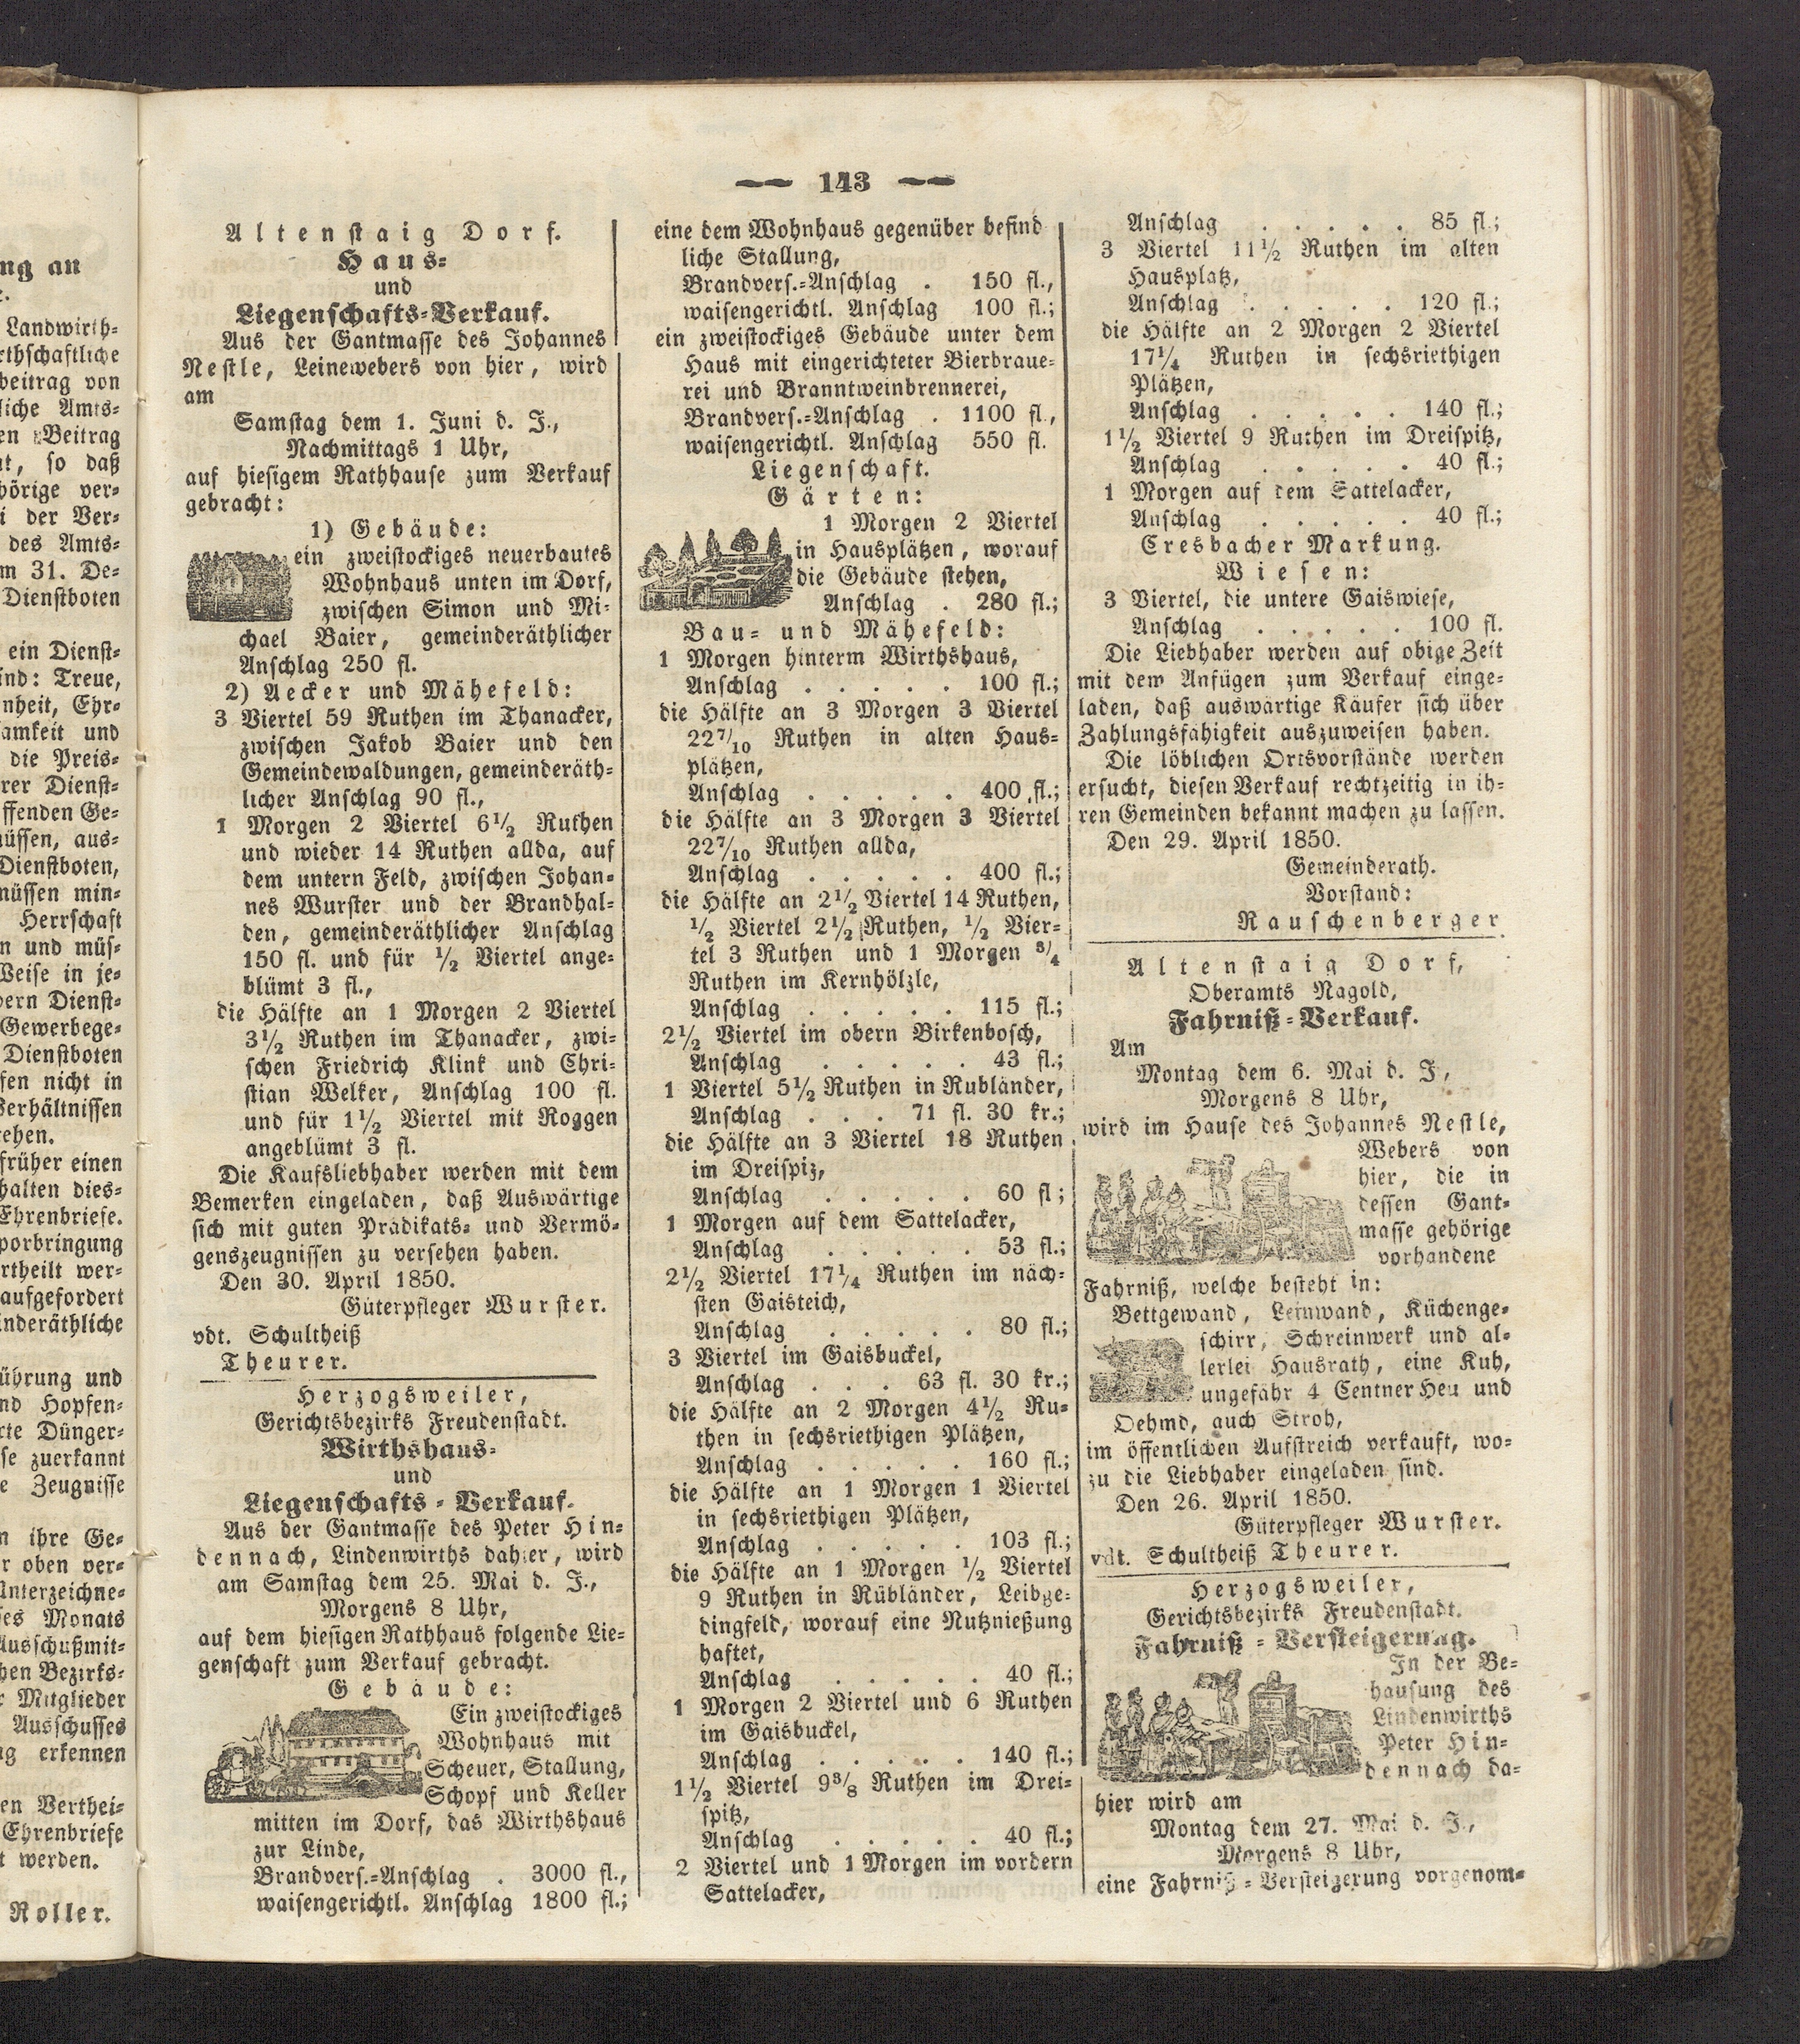 ng an
Landwirth-
rthschaftliche
beitrag von
liche Amts-
en Beitrag
t, so daß
hörige ver-
i der Ver-
des Amts-
m 31. De-
Dienstboten
ein Dienst-
ind: Treue,
nheit, Ehr-
amkeit und
die Preis-
rer Dienst-
ffenden Ge-
müssen, aus-
Dienstboten,
müssen min-
Herrschaft
n und müs-
Weise in je-
dern Dienst-
Gewerbege-
Dienstboten
fen nicht in
Verhältnissen
ehen.
früher einen
halten dies-
Ehrenbriefe.
porbringung
rtheilt wer-
aufgefordert
inderäthliche
ührung und
nd Hopfen-
rte Dünger-
se zuerkannt
e Zeugnisse
n ihre Ge-
r oben ver-
Unterzeichne-
ses Monats
Ausschußmit-
hen Bezirks-
r Mitglieder
Ausschusses
ng erkennen
en Verthei-
Ehrenbriefe
t werden.
Roller.
— 143 —
Altenstaig Dorf.
Haus-
und
Liegenschafts-Verkauf.
Aus der Gantmasse des Johannes
Nestle, Leinewebers von hier, wird
am
Samstag dem 1. Juni d. J.,
Nachmittags 1 Uhr,
auf hiesigem Rathhause zum Verkauf
gebracht:
1) Gebäude:
ein zweistockiges neuerbautes
Wohnhaus unten im Dorf,
zwischen Simon und Mi-
chael Baier, gemeinderäthlicher
Anschlag 250 fl.
2) Aecker und Mähefeld:
3 Viertel 59 Ruthen im Thanacker,
zwischen Jakob Baier und den
Gemeindewaldungen, gemeinderäth-
licher Anschlag 90 fl.,
1 Morgen 2 Viertel 6½ Ruthen
und wieder 14 Ruthen allda, auf
dem untern Feld, zwischen Johan-
nes Wurster und der Brandhal-
den, gemeinderäthlicher Anschlag
150 fl. und für ½ Viertel ange-
blümt 3 fl.,
die Hälfte an 1 Morgen 2 Viertel
3½ Ruthen im Thanacker, zwi-
schen Friedrich Klink und Chri-
stian Welker, Anschlag 100 fl.
und für 1½ Viertel mit Roggen
angeblümt 3 fl.
Die Kaufsliebhaber werden mit dem
Bemerken eingeladen, daß Auswärtige
sich mit guten Prädikats- und Vermö-
genszeugnissen zu versehen haben.
Den 30. April 1850.
Güterpfleger Wurster.
vdt. Schultheiß
Theurer.
Herzogsweiler,
Gerichtsbezirks Freudenstadt.
Wirthshaus-
und
Liegenschafts-Verkauf.
Aus der Gantmasse des Peter Hin-
dennach, Lindenwirths dahier, wird
am Samstag dem 25. Mai d. J.,
Morgens 8 Uhr,
auf dem hiesigen Rathhaus folgende Lie-
genschaft zum Verkauf gebracht.
Gebäude:
Ein zweistockiges
Wohnhaus mit
Scheuer, Stallung,
Schopf und Keller
mitten im Dorf, das Wirthshaus
zur Linde,
Brandvers.-Anschlag . 3000 fl.,
waisengerichtl. Anschlag 1800 fl.;
eine dem Wohnhaus gegenüber befind
liche Stallung,
Brandvers.-Anschlag . 150 fl.,
waisengerichtl. Anschlag 100 fl.;
ein zweistockiges Gebäude unter dem
Haus mit eingerichteter Bierbraue-
rei und Branntweinbrennerei,
Brandvers.-Anschlag . 1100 fl.,
waisengerichtl. Anschlag 550 fl.
Liegenschaft.
Gärten:
1 Morgen 2 Viertel
in Hausplätzen, worauf
die Gebäude stehen,
Anschlag . 280 fl.;
Bau- und Mähefeld:
1 Morgen hinterm Wirthshaus,
Anschlag . . . . . 100 fl.;
die Hälfte an 3 Morgen 3 Viertel
22 7/10 Ruthen in alten Haus-
plätzen,
Anschlag . . . . . 400 fl.;
die Hälfte an 3 Morgen 3 Viertel
22 7/10 Ruthen allda,
Anschlag . . . . . 400 fl.;
die Hälfte an 2½ Viertel 14 Ruthen,
½ Viertel 2½ Ruthen, ½ Vier-
tel 3 Ruthen und 1 Morgen ¾
Ruthen im Kernhölzle,
Anschlag . . . . . 115 fl.;
2½ Viertel im obern Birkenbosch,
Anschlag . . . . . 43 fl.;
1 Viertel 5½ Ruthen in Rubländer,
Anschlag . . . 71 fl. 30 kr.;
die Hälfte an 3 Viertel 18 Ruthen
im Dreispiz,
Anschlag . . . . . 60 fl;
1 Morgen auf dem Sattelacker,
Anschlag . . . . . 53 fl.;
2½ Viertel 17¼ Ruthen im näch-
sten Gaisteich,
Anschlag . . . . . 80 fl.;
3 Viertel im Gaisbuckel,
Anschlag . . . 63 fl. 30 kr.;
die Hälfte an 2 Morgen 4½ Ru-
then in sechsriethigen Plätzen,
Anschlag . . . . . 160 fl.;
die Hälfte an 1 Morgen 1 Viertel
in sechsriethigen Plätzen,
Anschlag . . . . . 103 fl.;
die Hälfte an 1 Morgen ½ Viertel
9 Ruthen in Rübländer, Leibge-
dingfeld, worauf eine Nutznießung
haftet,
Anschlag . . . . . 40 fl.;
1 Morgen 2 Viertel und 6 Ruthen
im Gaisbuckel,
Anschlag . . . . . 140 fl.;
1½ Viertel 9⅜ Ruthen im Drei-
spitz,
Anschlag . . . . . 40 fl.;
2 Viertel und 1 Morgen im vordern
Sattelacker,
Anschlag . . . . . 85 fl.;
3 Viertel 11½ Ruthen im alten
Hausplatz,
Anschlag . . . . . 120 fl.;
die Hälfte an 2 Morgen 2 Viertel
17¼ Ruthen in sechsriethigen
Plätzen,
Anschlag . . . . . 140 fl.;
1½ Viertel 9 Ruthen im Dreispitz,
Anschlag . . . . . 40 fl.;
1 Morgen auf dem Sattelacker,
Anschlag . . . . . 40 fl.;
Cresbacher Markung.
Wiesen:
3 Viertel, die untere Gaiswiese,
Anschlag . . . . . 100 fl.
Die Liebhaber werden auf obige Zeit
mit dem Anfügen zum Verkauf einge-
laden, daß auswärtige Käufer sich über
Zahlungsfähigkeit auszuweisen haben.
Die löblichen Ortsvorstände werden
ersucht, diesen Verkauf rechtzeitig in ih-
ren Gemeinden bekannt machen zu lassen.
Den 29. April 1850.
Gemeinderath.
Vorstand:
Rauschenberger.
Altenstaig Dorf,
Oberamts Nagold,
Fahrniß-Verkauf.
Am
Montag dem 6. Mai d. J,
Morgens 8 Uhr,
wird im Hause des Johannes Nestle,
Webers von
hier, die in
dessen Gant-
masse gehörige
vorhandene
Fahrniß, welche besteht in:
Bettgewand, Leinwand, Küchenge-
schirr, Schreinwerk und al-
lerlei Hausrath, eine Kuh,
ungefähr 4 Centner Heu und
Oehmd, auch Stroh,
im öffentlichen Aufstreich verkauft, wo-
zu die Liebhaber eingeladen sind.
Den 26. April 1850.
Güterpfleger Wurster.
vdt. Schultheiß Theurer.
Herzogsweiler,
Gerichtsbezirks Freudenstadt.
Fahrniß-Versteigerung.
In der Be-
hausung des
Lindenwirths
Peter Hin-
dennach da-
hier wird am
Montag dem 27. Mai d. J.,
Morgens 8 Uhr,
eine Fahrniß-Versteigerung vorgenom-